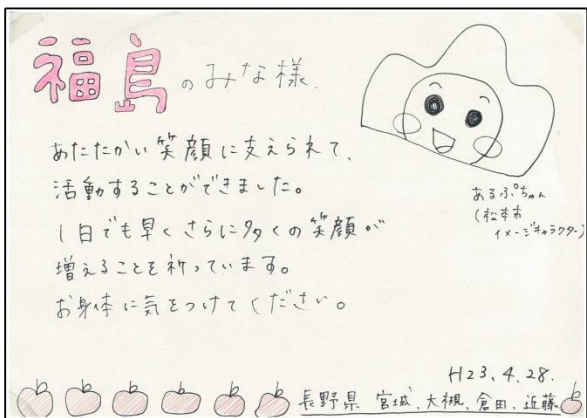 福島のみな様
あたたかい笑顔に支えられて、
活動することができました。
1日でも早くさらに多くの笑顔が
増えることを祈っています。
お身体に気をつけてください。
あるぷちゃん
(松本市
イメージキャラクター)
H23.4.28.
長野県 宮城、大槻、倉田、近藤